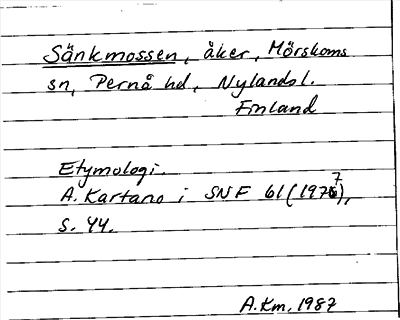 Sänkmossen, åker, Mörskoms
sn, Pernå hd, Nylandsl.
Finland
Etymologi.
A. Kartano i SNF 61 (1977),
s. 44.
A.Km, 1987